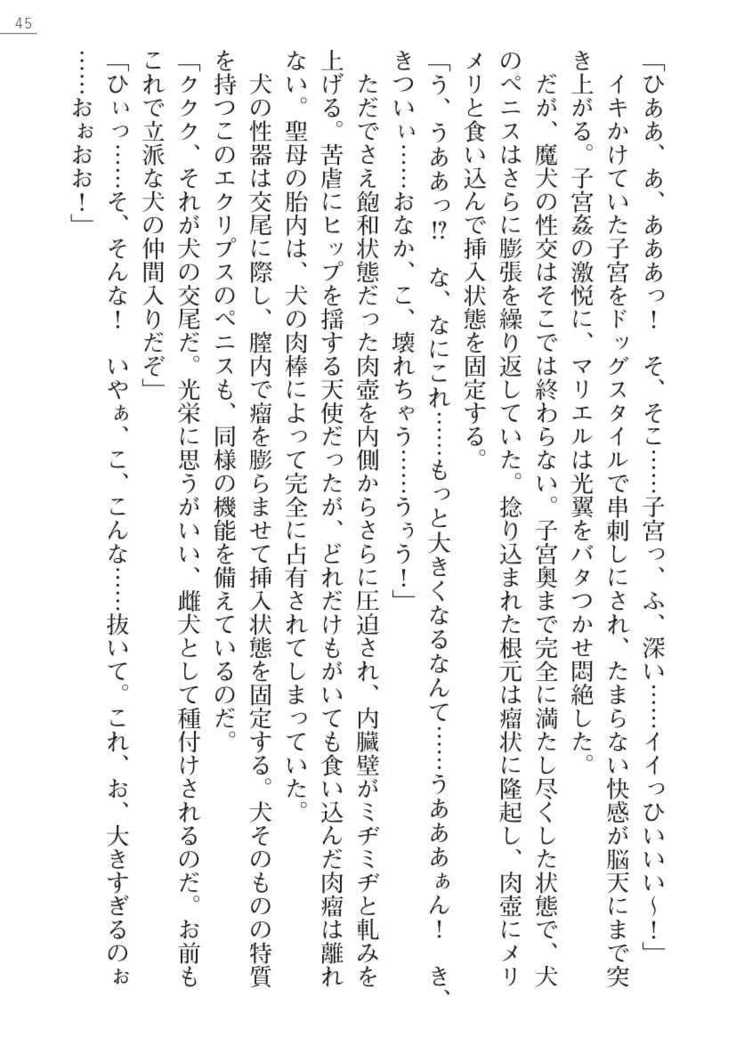 45
「ひああ、あ、あああっ！　そ、そこ……子宮っ、ふ、深い……イイっひいいい～！」
　イキかけていた子宮をドッグスタイルで串刺しにされ、たまらない快感が脳天にまで突
き上がる。子宮姦の激悦に、マリエルは光翼をバタつかせ悶絶した。
　だが、魔犬の性交はそこでは終わらない。子宮奥まで完全に満たし尽くした状態で、犬
のペニスはさらに膨張を繰り返していた。捻り込まれた根元は瘤状に隆起し、肉壺にメリ
メリと食い込んで挿入状態を固定する。
「う、うああっ!?　な、なにこれ……もっと大きくなるなんて……うあああぁん！　き、
きついぃ……おなか、こ、壊れちゃう……うぅう！」
　ただでさえ飽和状態だった肉壺を内側からさらに圧迫され、内臓壁がミヂミヂと軋みを
上げる。苦虐にヒップを揺する天使だったが、どれだけもがいても食い込んだ肉瘤は離れ
ない。聖母の胎内は、犬の肉棒によって完全に占有されてしまっていた。
　犬の性器は交尾に際し、膣内で瘤を膨らませて挿入状態を固定する。犬そのものの特質
を持つこのエクリプスのペニスも、同様の機能を備えているのだ。
「ククク、それが犬の交尾だ。光栄に思うがいい、雌犬として種付けされるのだ。お前も
これで立派な犬の仲間入りだぞ」
「ひぃっ……そ、そんな！　いやぁ、こ、こんな……抜いて。これ、お、大きすぎるのぉ
……おぉおお！」